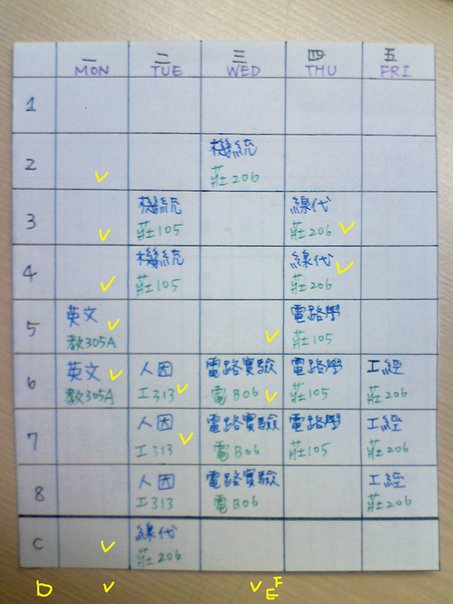 一 二 三 四 五
MON TUE WED THU FRI
1
2 機統
莊206
3 機統 線代
莊105 莊206
4 機統 線代
莊105 莊206
5 英文 電路學
教305A 莊105
6 英文 人因 電路實驗 電路學 工經
教305A 工313 電B06 莊105 莊206
7 人因 電路實驗 電路學 工經
工313 電B06 莊105 莊206
8 人因 電路實驗 工經
工313 電B06 莊206
C 線代
莊206
D EF